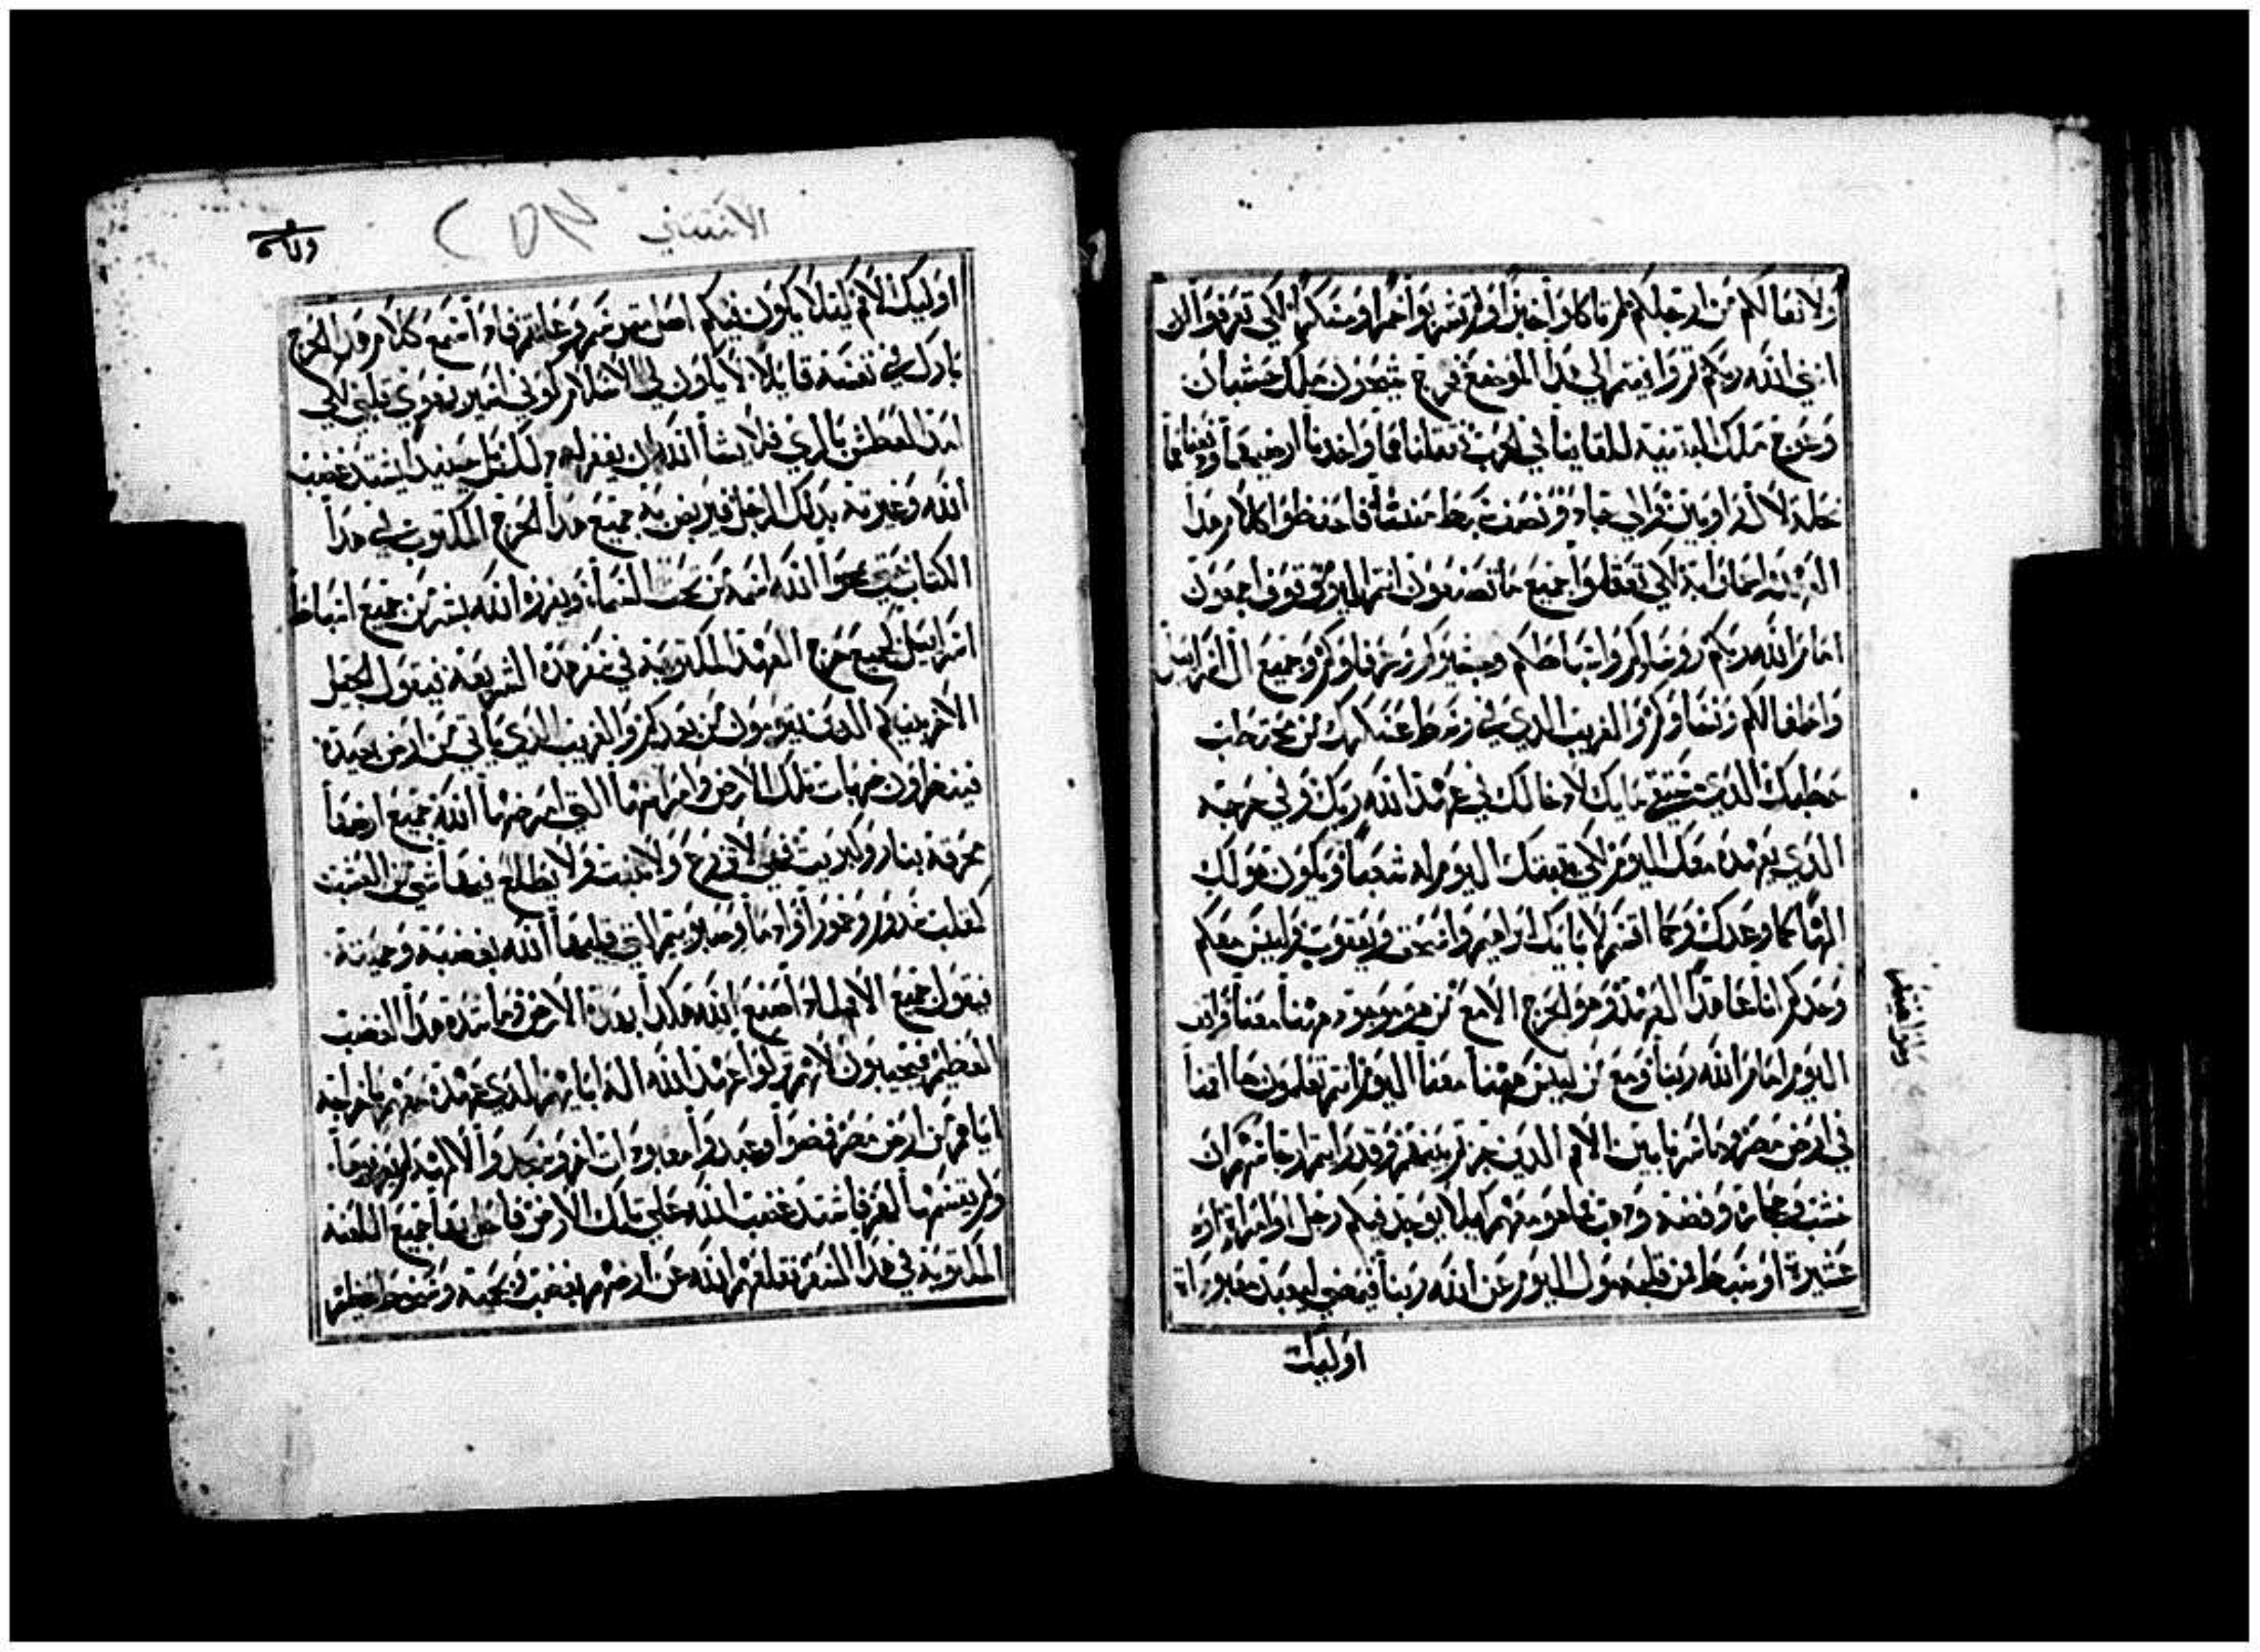 ولا نعالكم من ارجلكم لم تاكلوا خبزا ولم تشربوا خمرا ومسكرا لكي تعرفوا ان
انني الله ربكم ثم وافيتم الي هذا الموضع فخرج شيحون ملك حشبان
وعوج ملك البثنية للقاينا في الحرب فقتلناهما واخدنا ارضهما ودفعناها
نحلة لال راوبين وال جاد ونصف سبط منشا فاحفظوا كلام هدا
العهد واعملوا به لكي تعقلوا جميع ما تصنعون انتم اليوم وقوف اجمعون
امام الله ربكم روساوكم واسباطكم ومشيختكم وعرفاوكم وجميع ال اسراييل
واطفالكم ونساوكم والغريب الدي في وسط عسكرك من محتطب
حطبك الدي مستقي مايك لادخالك في عهد الله ربك وفي حرجه
الدي يعهده معك اليوم لكي يثبتك اليوم له شعبا ويكون هو لك
الها كما وعدك وكما اقسم لابايك ابراهيم واسحق ويعقوب وليس معكم
وحدكم انا عاقد هدا العهد وهو الحرج الا مع من هو موجود ههنا معنا واقف
اليوم امام الله ربنا ومع من ليس ههنا معنا اليوم انتم تعلمون كما اقمنا
في ارض مصر وما سرنا بين الامم الدين جزتم بينهم وقد رايتم ارجاسهم ان
خشب وحجارة وفضة ودهب ما هو معهم ليلا يوجد فيكم رجل او امراة او
عشيرة او سبط من قلبه يميل اليوم عن الله ربنا فيمضي ليعبد معبودات
اوليك
الاستثني
اوليك الامم ليلا يكون فيكم اصل يثمر سم وعلقم فادا سمع كلام هدا الحرج
بارك في نفسه قايلا يكون لي السلام كوني اسير بهوي قلبي لكي
العطش بالري فلا يشا الله ان يغفر له ولكن حينيد يشتد غضب
الله وغيرته بدلك الرجل فيربض به جميع هدا الحرج المكتوب في هدا
الكتاب حتي يمحوا الله اسمه من تحت السماء ويفرزه الله بشر من جميع اسباط
اسراييل كجميع حرج العهد المكتوبة في سفر هده الشريعة فيقول الجيل
الاخر بنيكم الدين يقومون من بعدكم والغريب الدي ياتي من ارض بعيدة
فينظرون ضربات تلك الارض وامراضها التي امرضها الله جميع ارضها
محرقة بنار وكبريت فهي لا تزرع ولا تنبت ولا يطلع فيها شي من العشب
كقلب سدوم وغمورا وادما وصبوييم التي قلبها الله بغضبه وحميته
فيقول جميع الامم لمادا صنع الله هكدا بهده الارض وما شدة هدا الغضب
العظيم فيجيبون لانهم تركوا عهد الله اله ابايهم الدي عهده معهم باخراجه
اياهم من ارض مصر فمضوا وعبدوا معبودات اخر وسجدوا لالهة لم يعرفوها
ولم يقسمها لهم فاشتد غضب الله علي تلك الارض فاحل بها جميع اللعنة
المكتوبة في هدا السفر فقلعهم الله عن ارضهم بغضب وحمية وسخط عظيم